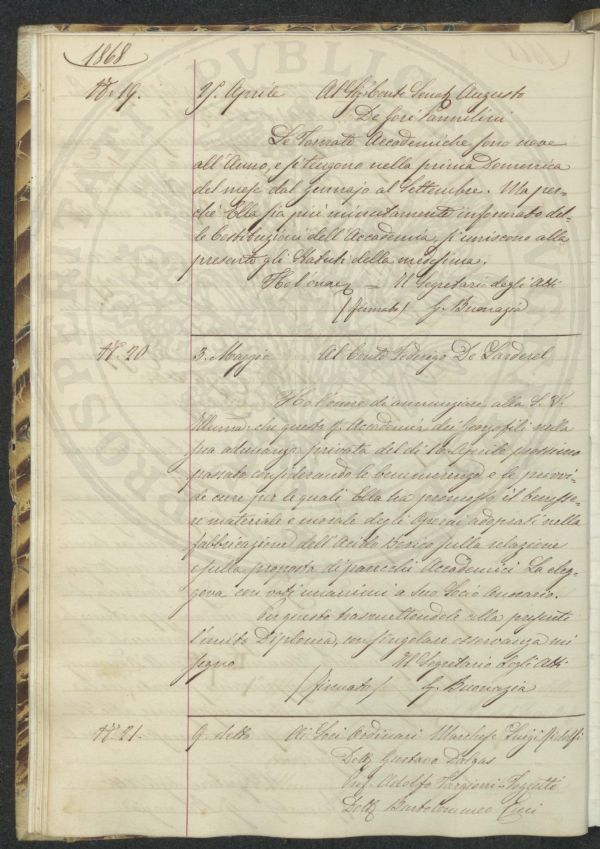 1868
N. 19. 25. Aprile Al Sig. Conte Senat. Augusto
De Gori Pannilini
Le Tornate Accademiche sono nove
all'Anno, e si tengono nella prima Domenica
del mese dal Gennajo al Settembre. Ma per-
chè Ella sia più minutamente informato del-
le Costituzioni dell'Accademia, si uniscono alla
presente gli Statuti della medesima.
Ho l'onore — Il Segretario degli Atti
(firmato) G. Buonazia
N. 20 3. Maggio Al Conte Federigo De Larderel
Ho l'onore di annunziare alla S. V.
Illma: che questa Accademia dei Georgofili nella
sua adunanza privata del dì 16 Aprile prossimo
passato considerando le benemerenze e le provvi-
de cure per le quali Ella ha promosso il benesse-
re materiale e morale degli Operai adoprati nella
fabbricazione dell'Acido Borico sulla relazione
e sulla proposta di parecchi Accademici La eleg-
geva con voti unanimi a suo Socio onorario.
Per questo trasmettendole alla presente
l'unito Diploma, con singolare osservanza mi
segno Il Segretario degli Atti
(firmato) G. Buonazia
N. 21. 9. detto Ai Soci Ordinari Marchese Luigi Ridolfi
Dott. Gustavo Dalgas
Prof. Adolfo Targioni-Tozzetti
Dott. Bartolommeo Cini